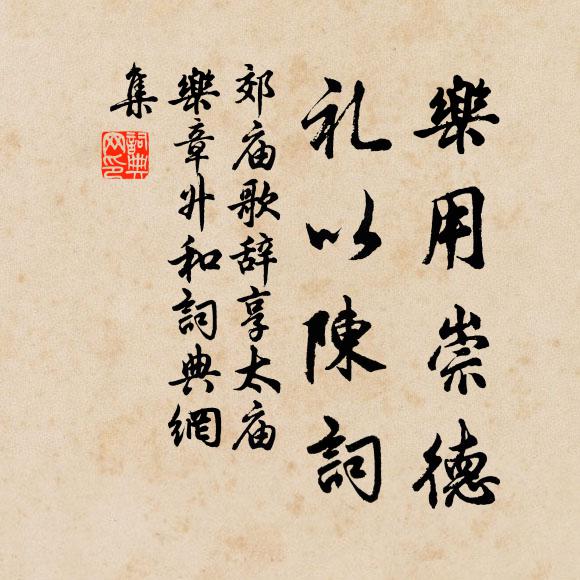 樂用崇德
礼以陳詞
郊庙歌辞享太庙
樂章廾和詞典網
集
詞典
网印